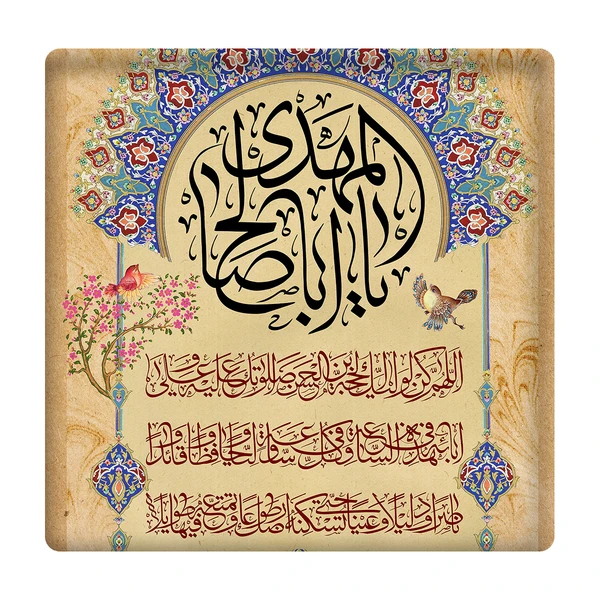 یا اباصالح المهدی
اللهم کن لولیک الحجة بن الحسن صلواتک علیه و علی
ابائه فی هذه الساعة و فی کل ساعة ولیا و حافظا و قائدا و
ناصرا و دلیلا و عینا حتی تسکنه ارضک طوعا و تمتعه فیها طویلا